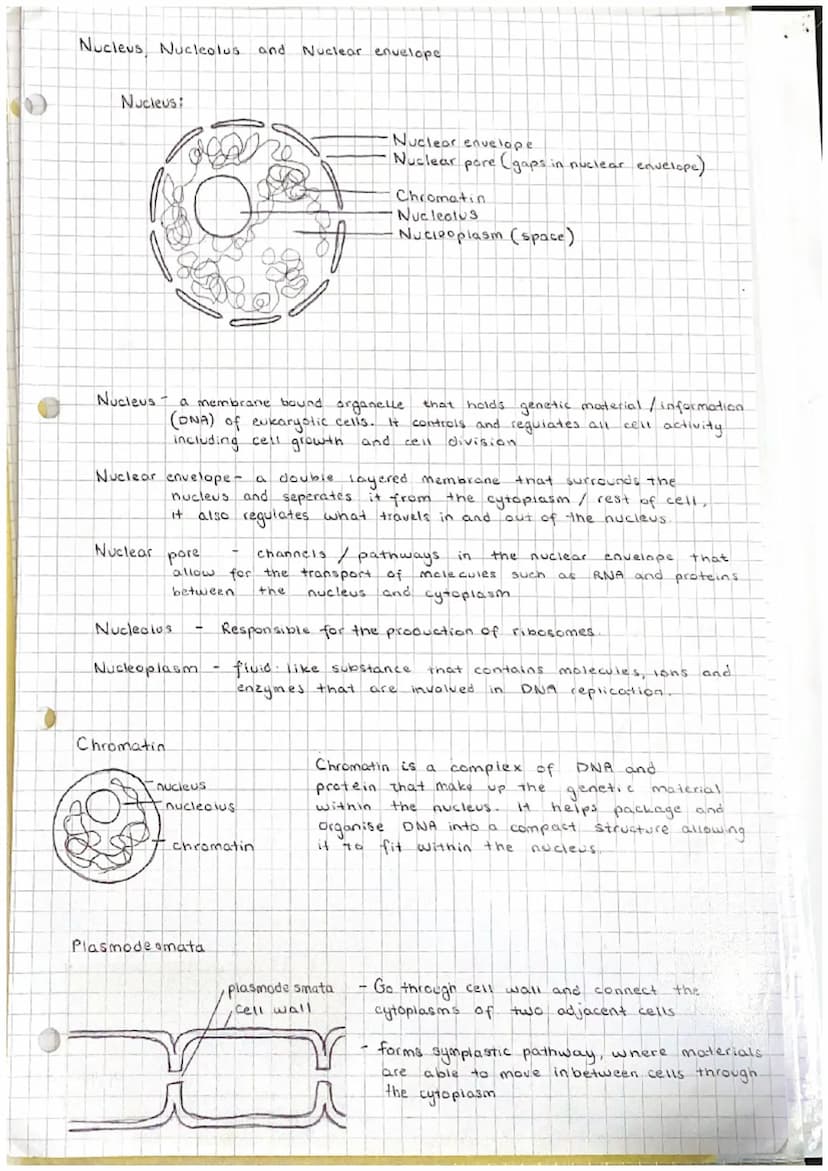 Nucleus, Nucleolus and Nuclear envelope
Nucleus:
Nuclear envelope
Nuclear pore (gaps in nuclear envelope)
Chromatin
Nucleolus
Nucleoplasm (space)
Nucleus - a membrane bound organelle that holds genetic material / information
(DNA) of eukaryotic cells. It controls and regulates all cell activity
including cell growth and cell division
Nuclear envelope - a double layered membrane that surrounds the
nucleus and seperates it from the cytoplasm / rest of cell,
it also regulates what travels in and out of the nucleus.
Nuclear pore - channels / pathways in the nuclear envelope that
allow for the transport of molecules such as RNA and proteins
between the nucleus and cytoplasm
Nucleolus - Responsible for the production of ribosomes.
Nucleoplasm - fluid-like substance that contains molecules, ions and
enzymes that are involved in DNA replication.
Chromatin
nucleus
nucleolus
chromatin
Chromatin is a complex of DNA and
protein that make up the genetic material
within the nucleus. It helps package and
organise DNA into a compact structure allowing
it to fit within the nucleus.
Plasmodesmata
plasmodesmata
cell wall
- Go through cell wall and connect the
cytoplasms of two adjacent cells
- forms symplastic pathway, where materials
are able to move inbetween cells through
the cytoplasm